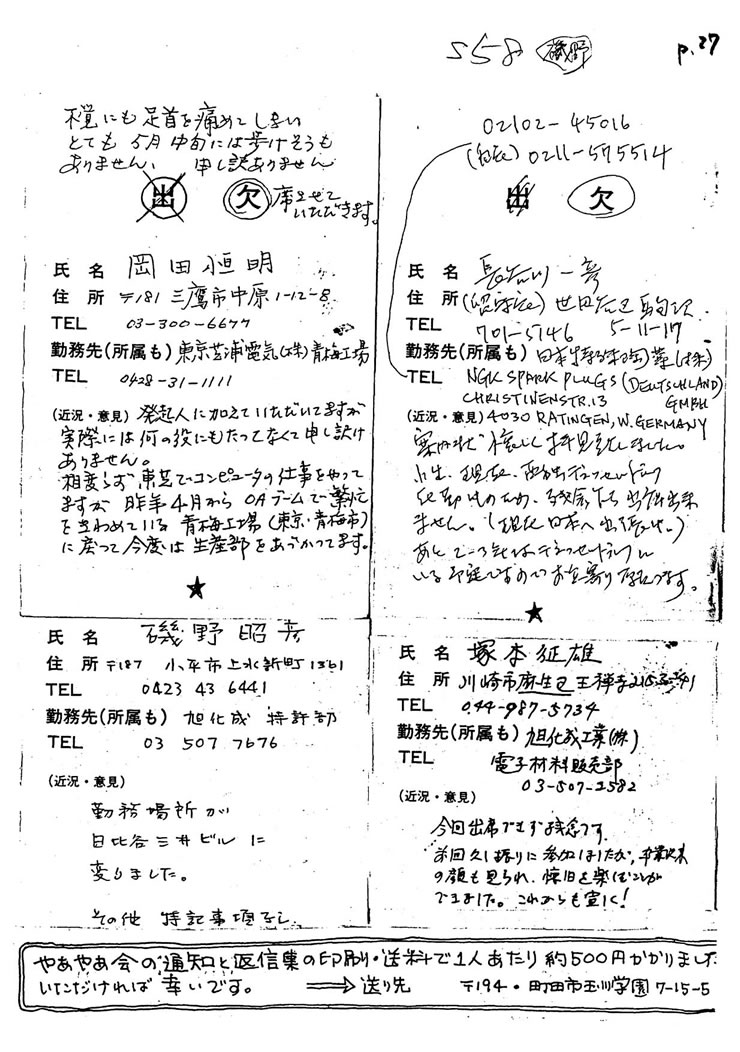 S58 磯野
p.27
不覚にも足首を痛めてしまい
とても5月中旬には歩けそうも
ありません、申し訳ありません
出 欠 席させて
いただきます。
氏 名 岡田恒明
住 所 〒181 三鷹市中原1-12-8
TEL 03-300-6677
勤務先(所属も) 東京芝浦電気(株)青梅工場
TEL 0428-31-1111
(近況・意見) 発起人に加えていただいてますが
実際には何の役にもたってなくて申し訳け
ありません。
相変らず東芝でコンピュータの仕事をやって
ますが 昨年4月からOAブームで繁忙
をきわめている 青梅工場(東京・青梅市)
に戻って今度は生産部をあづかってます。
★
02102-45016
(自宅) 0211-575514
出 欠
氏 名 長谷川 一彦
住 所 (留守宅) 世田谷区 駒沢
TEL 701-5146 5-11-17
勤務先(所属も) 日本特殊陶業(株)
TEL NGK SPARK PLUGS (DEUTSCHLAND)
CHRISTINENSTR.13 GMBH
(近況・意見) 4030 RATINGEN, W. GERMANY
案内状 拝見致しました。
小生、現在、西独デュッセルドルフ
出席出来
ません。(現在日本へ出張中。)
あと2〜3年はデュッセルドルフに
いる予定ですのでお立寄り
★
氏 名 磯野昭彦
住 所 〒187 小平市上水新町1361
TEL 0423 43 6441
勤務先(所属も) 旭化成 特許部
TEL 03 507 7676
(近況・意見)
勤務場所が
日比谷三井ビルに
変りました。
その他 特記事項なし
氏 名 塚本征雄
住 所 川崎市麻生区王禅寺
TEL 044-987-5734
勤務先(所属も) 旭化成工業(株)
TEL 電子材料販売部
03-507-2582
(近況・意見)
今回出席できず残念です。
前回久し振りに参加しましたが、卒業以来
の顔も見られ、懐旧を楽しむことが
できました。これからも宜しく!
やあやあ会の通知と返信集の印刷・送料で1人あたり約500円かかりました
いただければ幸いです。 ⟹ 送り先 〒194・町田市玉川学園7-15-5